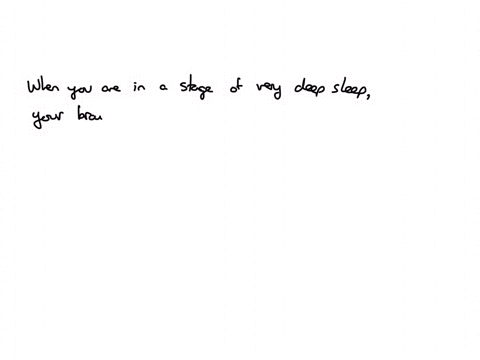 When you are in a stage of very deep sleep,
your brau